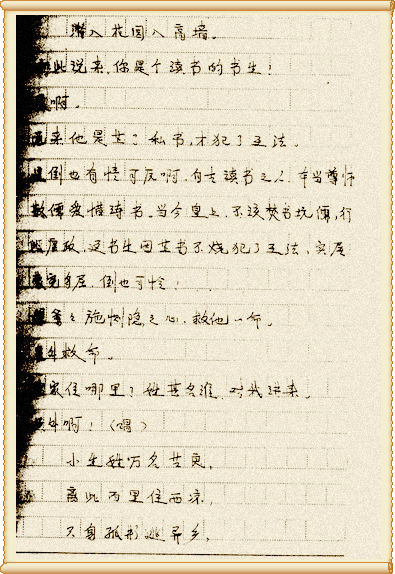 潜入花园入高墙。
如此说来,你是个读书的书生!
啊。
原来他是芒了私书,才犯了王法。
倒也有情可原啊,自古读书之人,本当尊师
敬儒爱惜诗书。当今皇上,不该焚书坑儒,行
此暴政,这书生因芒书不烧,犯了王法,实属
,倒也可怜!
之施恻隐之心,救他一命。
救命。
家住哪里?姓甚名谁,对我讲来。
啊!(唱)
小生姓万名芒更,
离此百里住西凉,
只身孤形逃异乡,